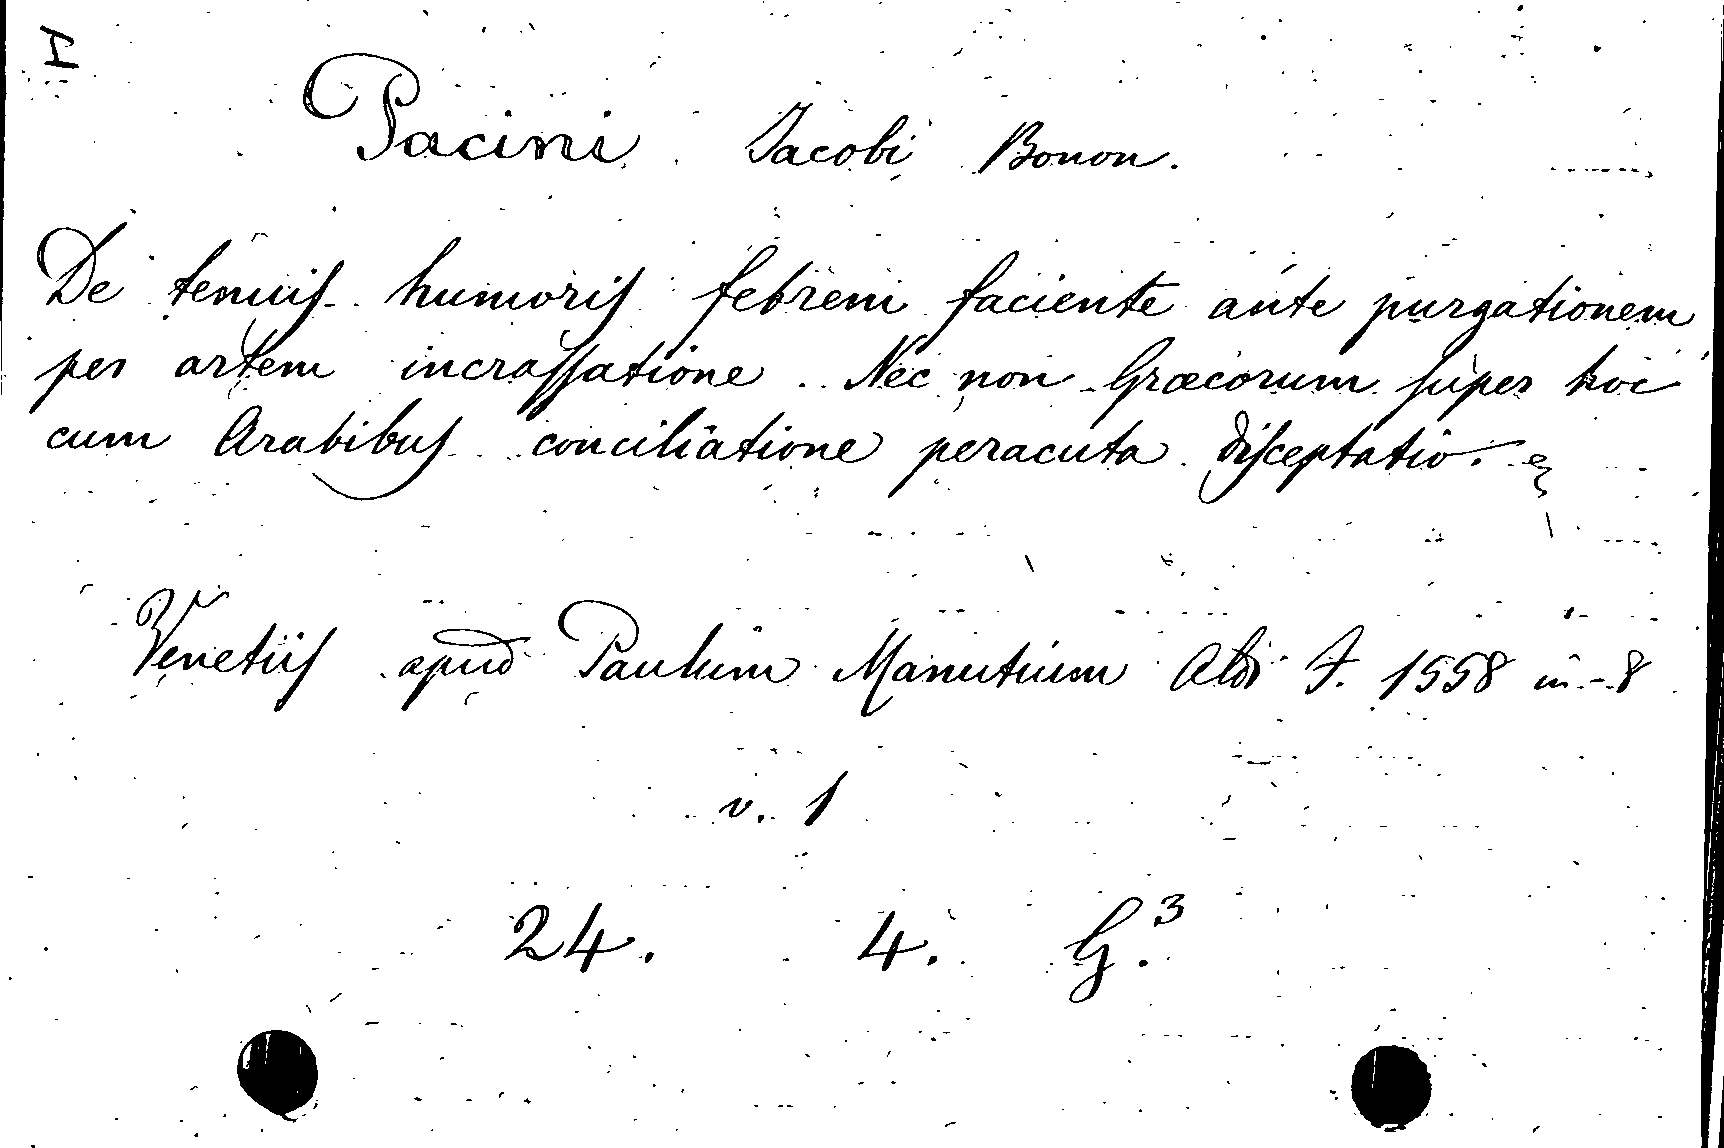 I
Pacini Jacobi Bonon.
De tenuis humoris febrem faciente ante purgationem
per artem incrassatione. Nec non Græcorum super hoc
cum Arabibus conciliatione peracuta disceptatio.
Venetiis apud Paulum Manutium Aldi F. 1558 in-8
v. 1
24. 4. G.³